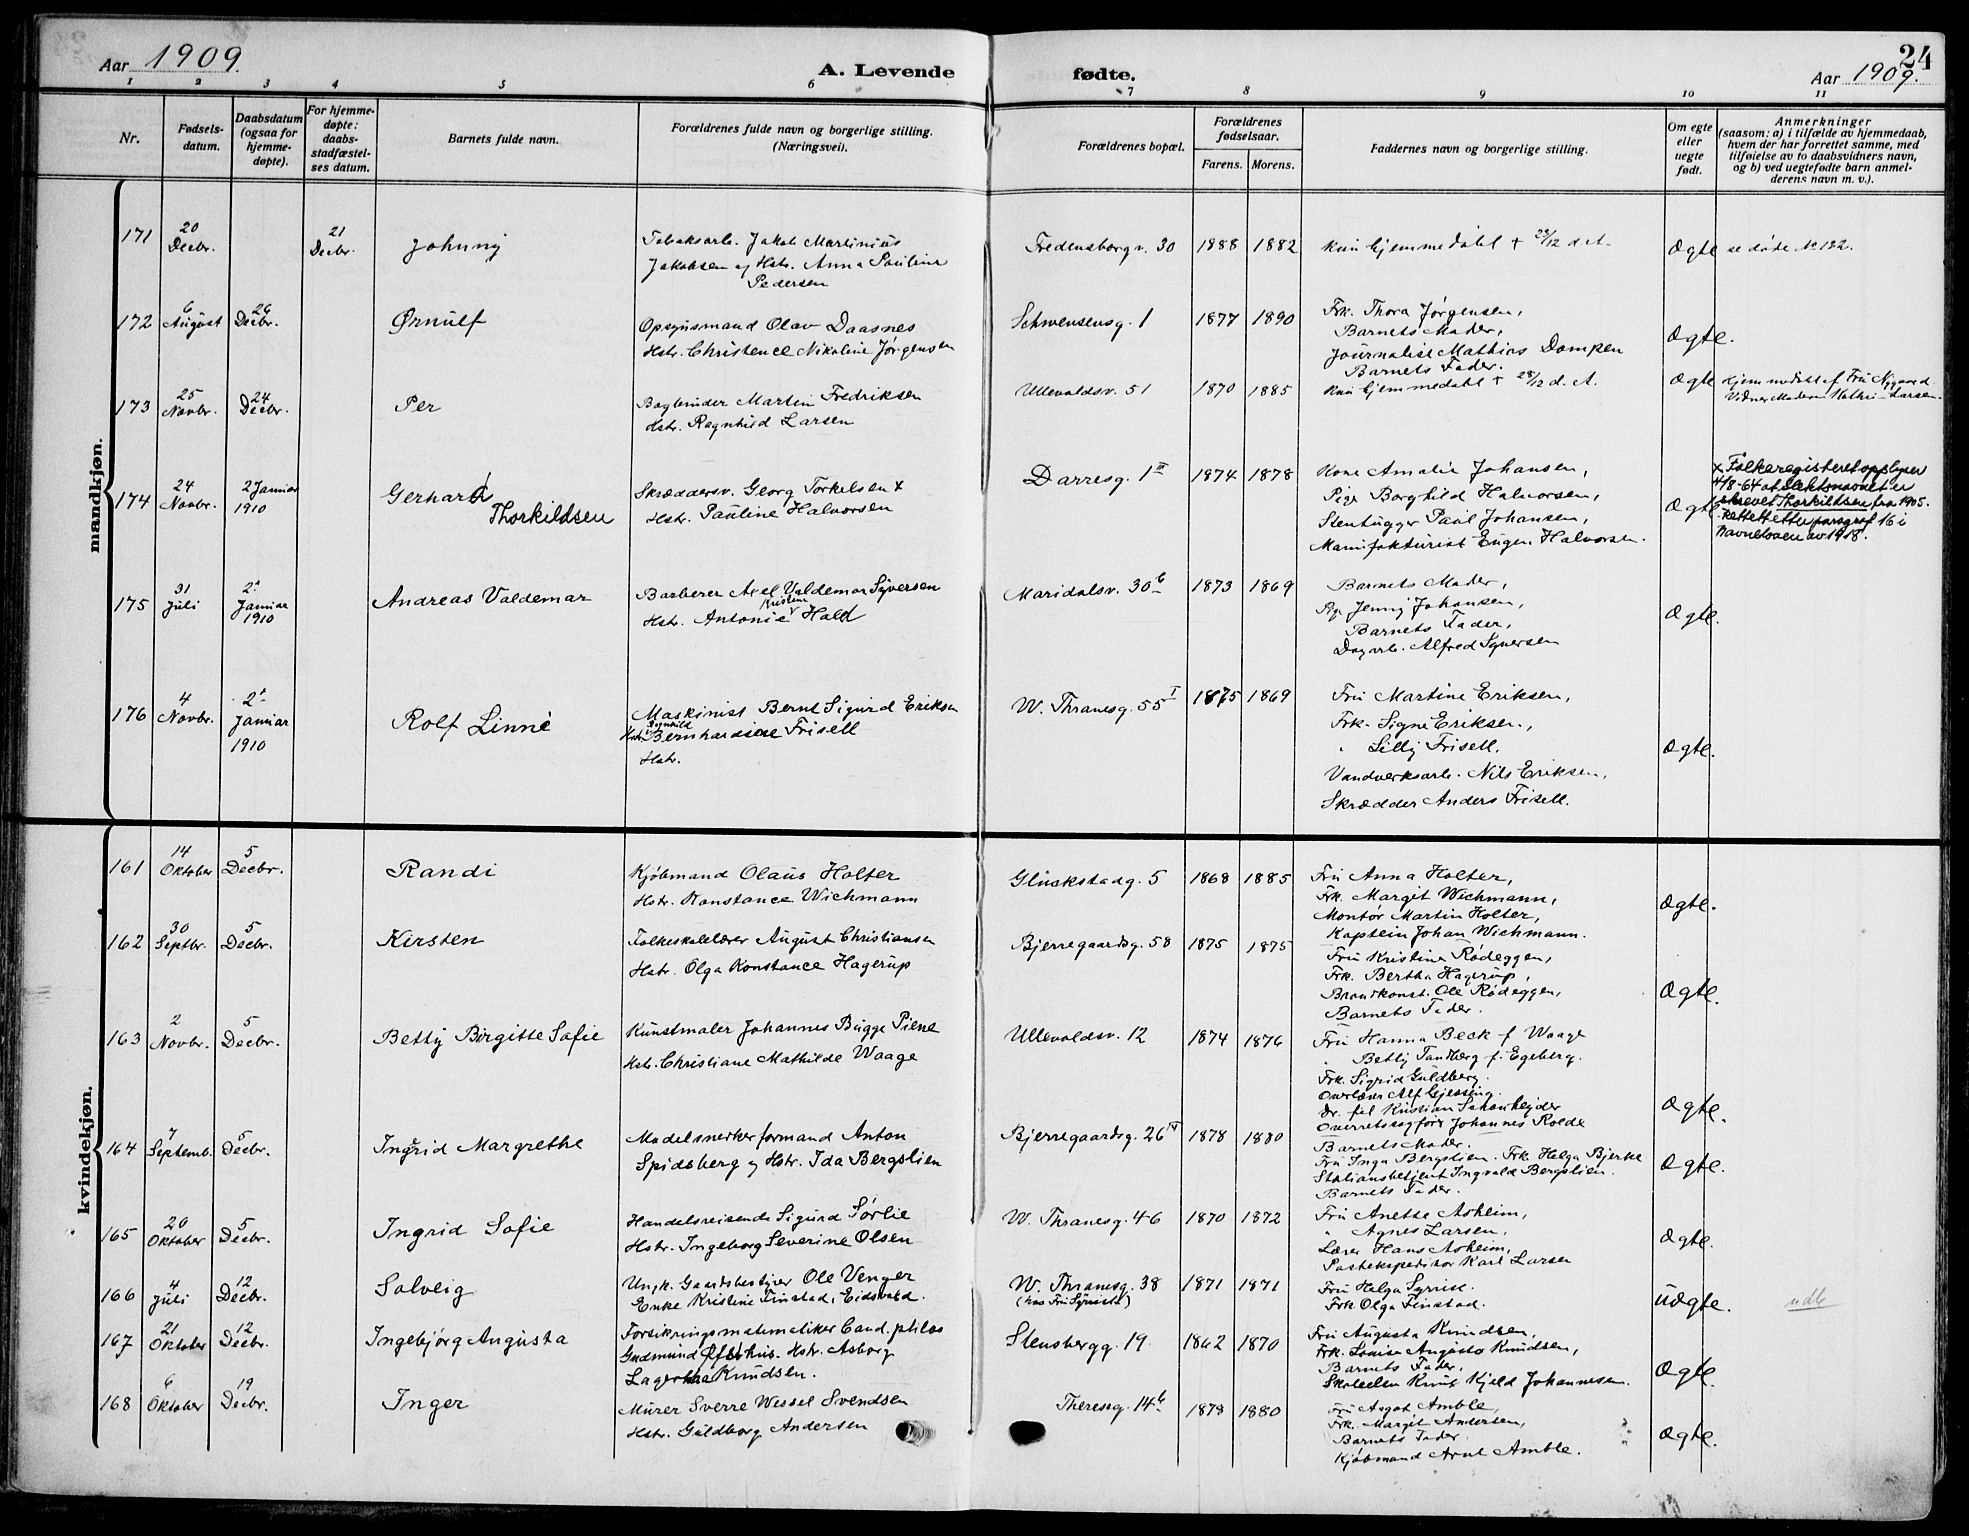 24
Aar 1909. A. Levende fødte. Aar 1909.
1 2 3 4 5 6 7 8 9 10 11
Nr.
Fødsels-
datum.
Daabsdatum
(ogsaa for
hjemme-
døpte).
For hjemme-
døpte:
daabs-
stadfæstel-
ses datum.
Barnets fulde navn.
Forældrenes fulde navn og borgerlige stilling.
(Næringsvei).
Forældrenes bopæl.
Forældrenes
fødselsaar.
Farens. Morens.
Faddernes navn og borgerlige stilling.
Om egte
eller
uegte
født.
Anmerkninger
(saasom: a) i tilfælde av hjemmedaab,
hvem der har forrettet samme, med
tilføielse av to daabsvidners navn,
og b) ved uegtefødte barn anmel-
derens navn m. v.).
mandkjøn.
171
20
Decbr.
21
Decbr.
Johnny
Tobaksarb. Jakob Martinius
Jakobsen og Hstr. Anna Pauline
Pedersen
Fredensborgv. 30
1888 1882
Kun hjemmedøbt + 29/12 d. A.
Ægte
se døde No 122.
172
6
August
26
Decbr.
Ørnulf
Opsynsmand Olav Daasnes
Hstr. Christence Nikoline Jørgensen
Schwensensg. 1
1877 1890
Frk. Thora Jørgensen,
Barnets Moder,
Journalist Mathias Dompen
Barnets Fader.
Ægte.
173
25
Novbr.
24
Decbr.
Per
Bogbinder Martin Fredriksen
Hstr. Ragnhild Larsen
Ullevoldsv. 51
1870 1885
Kun hjemmedøbt + 28/12 d. A.
Ægte
Hjemmedøbt af Fru Nygaard
Vidner Moderen Kathri Larsen.
174
24
Novbr.
2 Januar
1910
Gerhard
Thorkildsen
Skræddersv. Georg Torkelsen x
Hstr. Pauline Halvorsen
Darresg. 1 III
1874 1878
Kone Amalie Johansen,
Pige Borghild Halvorsen,
Stenhugger Paul Johansen,
Manufakturist Eugen Halvorsen.
Ægte
x Folkeregisteret opplyser
4/8-64 at slektsnavnet er
skrevet Thorkildsen fra 1905.
Rettet etter paragraf 16 i
Navneloven av 1918.
175
31
Juli
2.
Januar
1910
Andreas Valdemar
Barberer Axel Valdemar Syversen
Kristine
Hstr. Antonie Hald
Maridalsv. 30 b
1873 1869
Barnets Moder,
Pg. Jenny Johansen,
Barnets Fader,
Dagarb. Alfred Syversen
Ægte.
176
4
Novbr.
2.
Januar
1910
Rolf Linné
Maskinist Bernt Sigurd Eriksen
Hstr. Bernhardine Frisell
Hstr.
W. Thranesg. 55 I
1875 1869
Fru Martine Eriksen,
Frk. Signe Eriksen.,
" Lilly Frisell.
Vandverksarb. Nils Eriksen,
Skrædder Anders Frisell.
Ægte.
kvindekjøn.
161
14
Oktober
5
Decbr.
Randi
Kjøbmand Olaus Holter
Hstr. Konstance Wichmann
Glückstadg. 5
1868 1885
Fru Anna Holter,
Frk. Margit Wichmann,
Montør Martin Holter,
Kaptein Johan Wichmann.
Ægte.
162
30
Septbr.
5
Decbr.
Kirsten
Folkeskolelærer August Christiansen
Hstr. Olga Konstance Hagerup
Bjerregaardsg. 58
1875 1875
Fru Kristine Rødeggen,
Frk. Bertha Hagerup,
Brandkonst. Ole Rødeggen,
Barnets Fader.
Ægte.
163
2
Novbr.
5
Decbr.
Betty Birgitte Sofie
Kunstmaler Johannes Bugge Piene
Hstr. Christiane Mathilde Waage
Ullevoldsv. 12
1874 1876
Fru Hanna Beck f. Waage
" Betty Tandberg f. Egeberg.
Frk. Sigrid Guldberg.
Overlærer Alf Gjessing.
Dr. fil Kristian Schönheyder
Overretssagfører Johannes Rolde
Ægte.
164
7
Septemb.
5
Decbr.
Ingrid Margrethe
Modelsnekerformand Anton
Spidsberg og Hstr. Ida Bergslien
Bjerregaardsg. 26 IV
1878 1880
Barnets Moder.
Fru Inga Bergslien. Frk. Helga Bjerke
Stationsbetjent Ingvald Bergslien.
Barnets Fader.
Ægte.
165
20
Oktober
5
Decbr.
Ingrid Sofie
Handelsreisende Sigurd Sørlie
Hstr. Ingeborg Severine Olsen
W. Thranesg. 46
1870 1872
Fru Anette Asheim,
" Agnes Larsen,
Lærer Hans Asheim,
Postekspeditør Karl Larsen
Ægte.
166
4
Juli
12
Decbr.
Solveig
Ungk. Gaardsbestyrer Ole Venger
Enke Kristine Finstad, Eidsvold.
W. Thranesg. 38
(hos Fru Syrrist)
1871 1871
Fru Helga Syrrist.
Frk. Olga Finstad.
Uægte.
udb
167
21
Oktober
12
Decbr.
Ingebjørg Augusta
Forsikringsmatematiker Cand. philos
Gudmund Øfsthus. Hstr. Asborg
Lagertha Knudsen.
Stensbergg. 19.
1862 1870
Fru Augusta Knudsen,
Frk. Louise Augusta Knudsen,
Barnets Fader,
Skoleelev Knut Kjeld Johannesen.
Ægte.
168
6
Oktober
19
Decbr.
Inger
Murer Sverre Wessel Svendsen
Hstr. Guldborg Andersen
Theresg. 14 b
1878 1880
Fru Aagot Amble,
Frk. Margit Andersen,
Barnets Fader
Kjøbmand Arnt Amble.
Ægte.